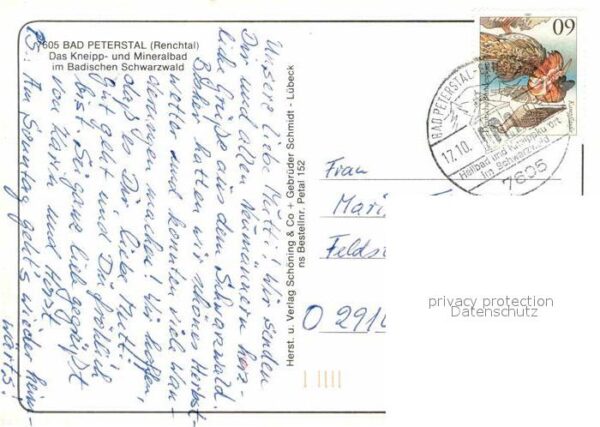 7605 BAD PETERSTAL (Renchtal)
Das Kneipp- und Mineralbad
im Badischen Schwarzwald
Unsere liebe Mutti! Wir senden
Dir und allen Neumännern herz-
liche Grüße aus dem Schwarzwald.
Bisher hatten wir schönes Herbst-
wetter und konnten viele Wan-
derungen machen! Wir hoffen,
daß es Dir, liebe Mutti,
gut geht und Du fröhlich
bist. Sei ganz lieb gegrüßt
von Karin und Horst
PS: Am Sonntag geht's wieder heim-
wärts!
Herst. u. Verlag Schöning & Co + Gebrüder Schmidt - Lübeck
ns Bestellnr. Petal 152
60
BAD PETERSTAL-
17.10.
Heilbad und Kneippkurort
im Schwarzwald
7605
Frau
Mari
Felds
O 291
privacy protection
Datenschutz